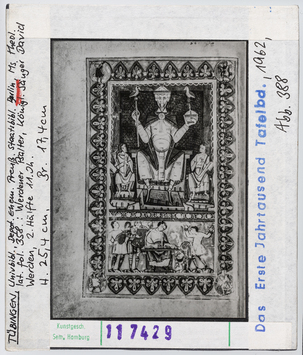 TÜBINGEN, Univbibl. Depot Eigen. Preuß. Staatsbibl. Berlin, Ms. theol.
lat. fol. 358.: Werdener Psalter, König. Sänger David
Werden, 2. Hälfte 11. Jh.
H. 25,4 cm, Br. 17,4 cm
Das Erste Jahrtausend Tafelbd., 1962,
Abb. 388
Kunstgesch.
Sem. Hamburg
117429